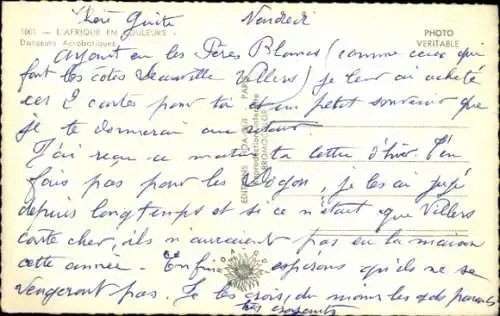 Chère Guite Vendredi
1001 - L'AFRIQUE EN COULEURS -
Danseurs Acrobatiques
PHOTO
VERITABLE
ayant eu les Pères Blancs (comme ceux qui
font les côtes Deauville Villers) je leur ai acheté
ces 2 cartes pour toi et un petit souvenir que
je te donnerai au retour
J'ai reçu ce matin ta lettre d'hier. T'en
fais pas pour les, je les ai jugé
depuis longtemps et si ce n'était que Villers
coûte cher, ils n'auraient pas eu la maison
cette année. Enfin espérons qu'ils ne se
vengeront pas. Je les crois, du moins les gds parents
très croyants
EDITIONS PARIS
Reproduction interdite